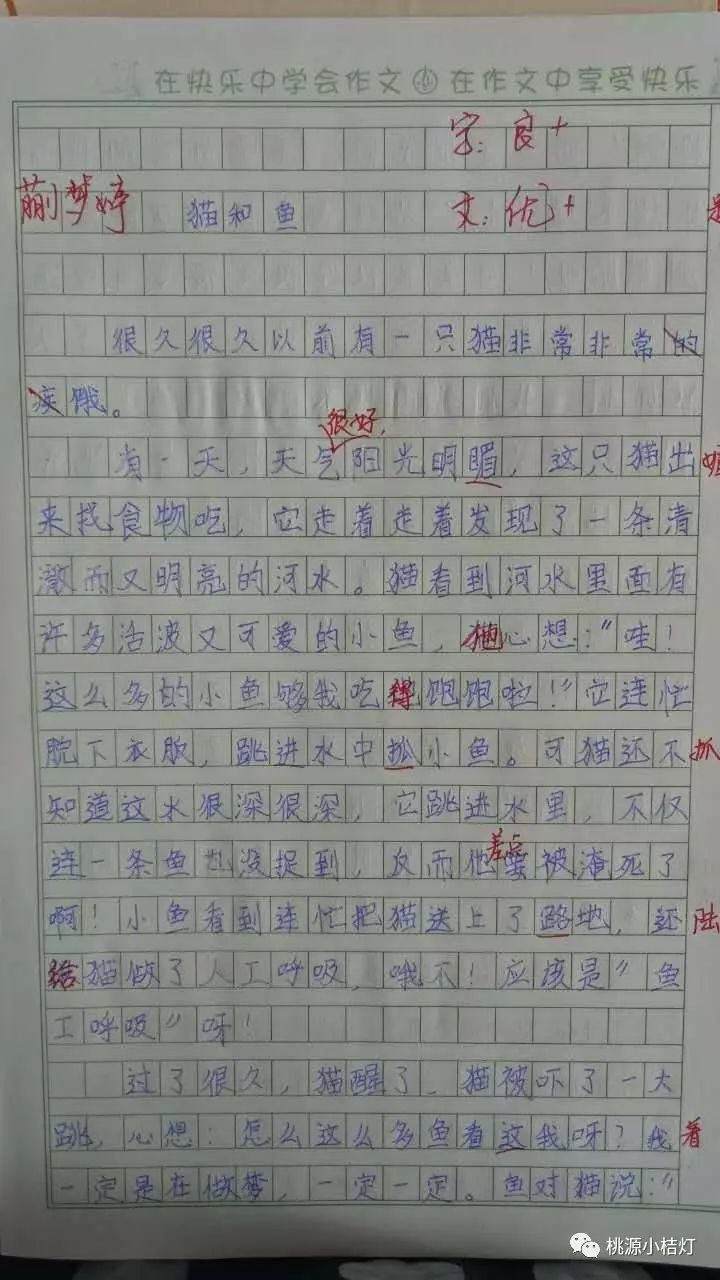 在快乐中学会作文 在作文中享受快乐
字：良+
蒯梦婷 猫和鱼 文：优+
很久很久以前有一只猫非常非常的
饿。
很好，
有一天，天气阳光明媚，这只猫出
来找食物吃，它走着走着发现了一条清
澈而又明亮的河水。猫看到河水里面有
许多活波又可爱的小鱼，猫心想："哇！
这么多的小鱼够我吃得饱饱啦！"它连忙
脱下衣服，跳进水中抓小鱼。可猫还不 抓
知道这水很深很深，它跳进水里，不仅
差点
连一条鱼也没捉到，反而他要被淹死了
啊！小鱼看到连忙把猫送上了路地，还 陆
给猫做了人工呼吸，哦不！应该是"鱼
工呼吸"呀！
过了很久，猫醒了，猫被吓了一大
跳，心想：怎么这么多鱼看这我呀？我 着
一定是在做梦，一定一定。鱼对猫说："
桃源小桔灯